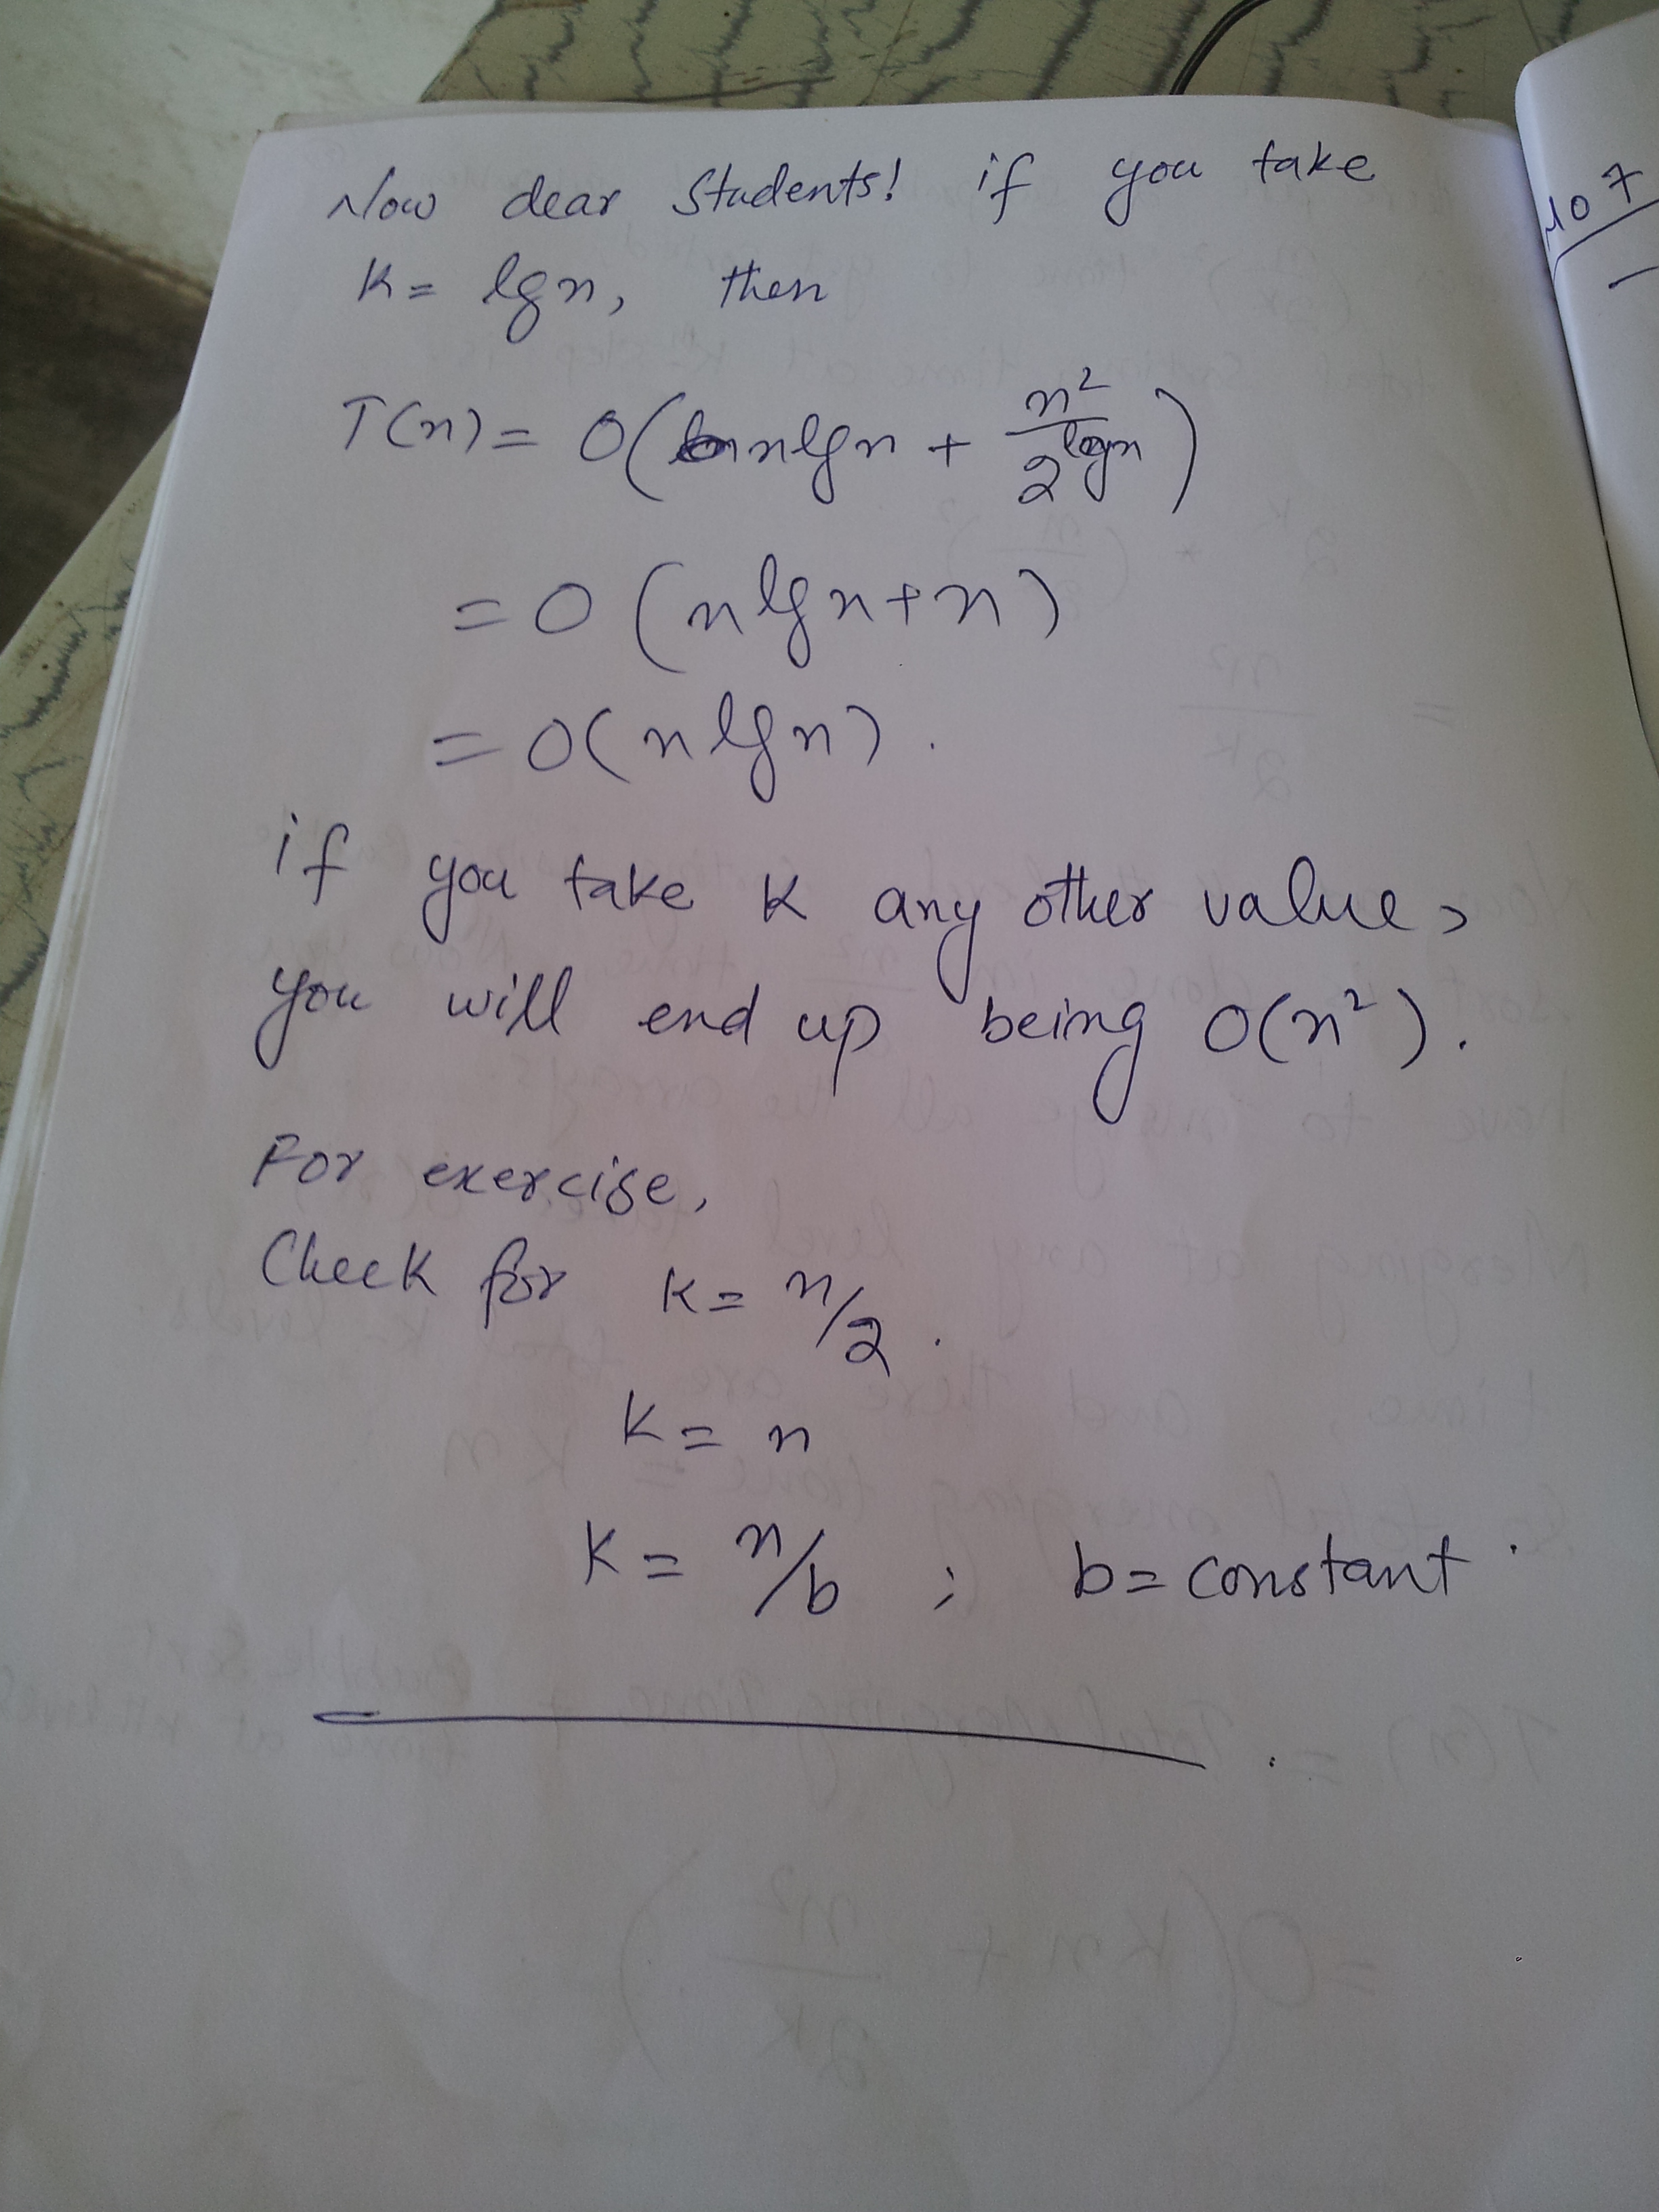 Now dear students! if you take
k = lg n, then
T(n) = O(n lg n + n²/2^logn)
= O(n lg n + n)
= O(n lg n).
if you take k any other value >
you will end up being O(n²).
For exercise,
Check for k = n/2.
k = n
k = n/b ; b = constant.